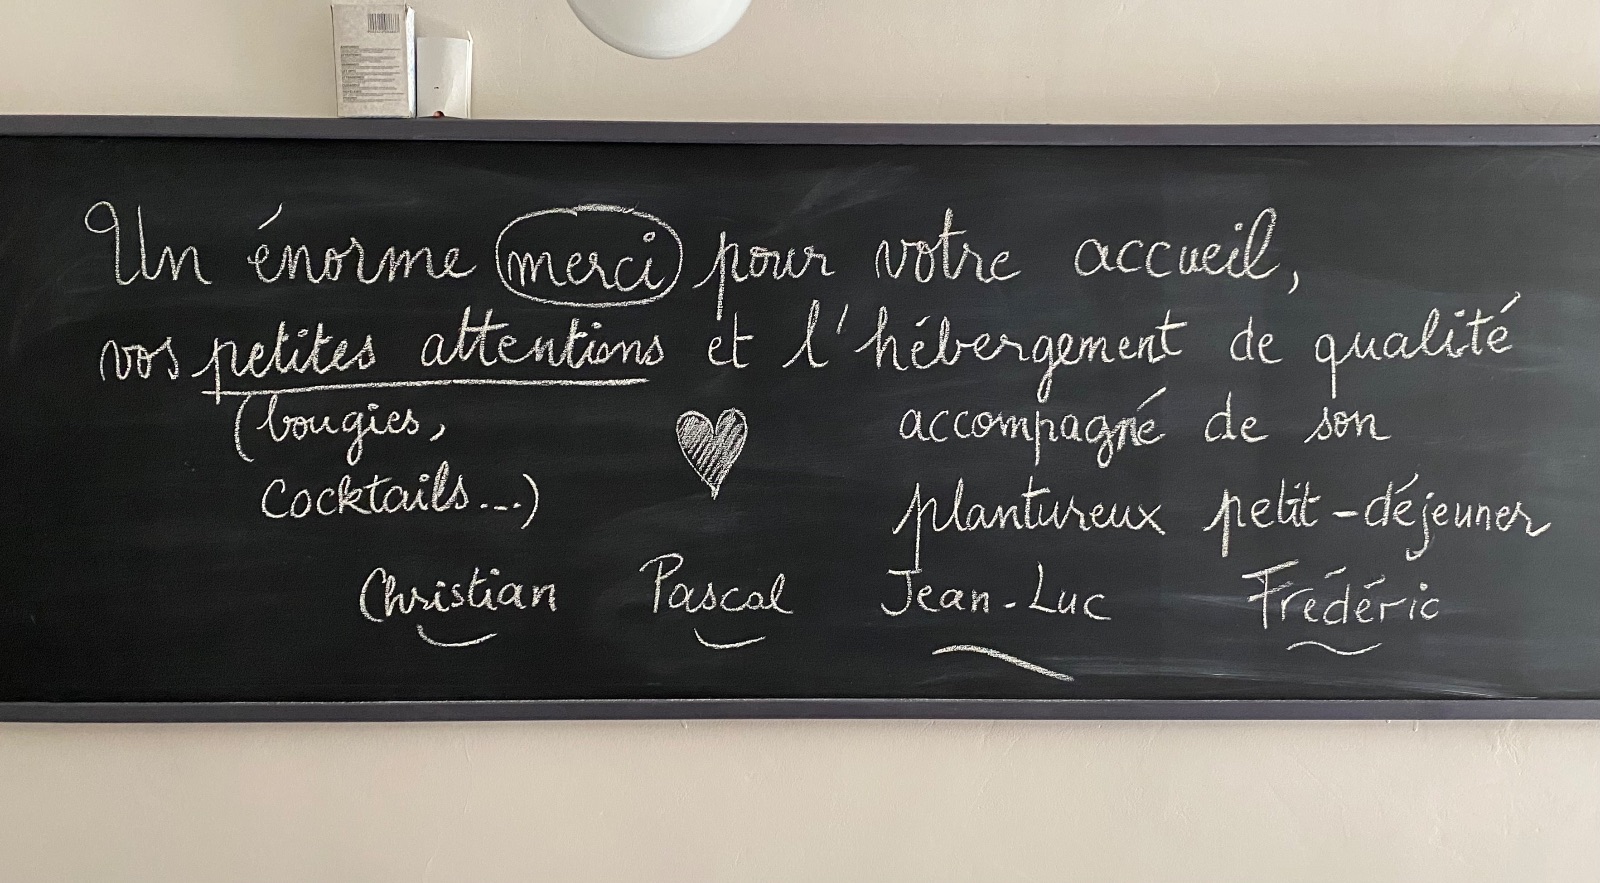 Un énorme merci pour votre accueil,
vos petites attentions et l'hébergement de qualité
(bougies,
cocktails...)
accompagné de son
plantureux petit-déjeuner
Christian Pascal Jean-Luc Frédéric